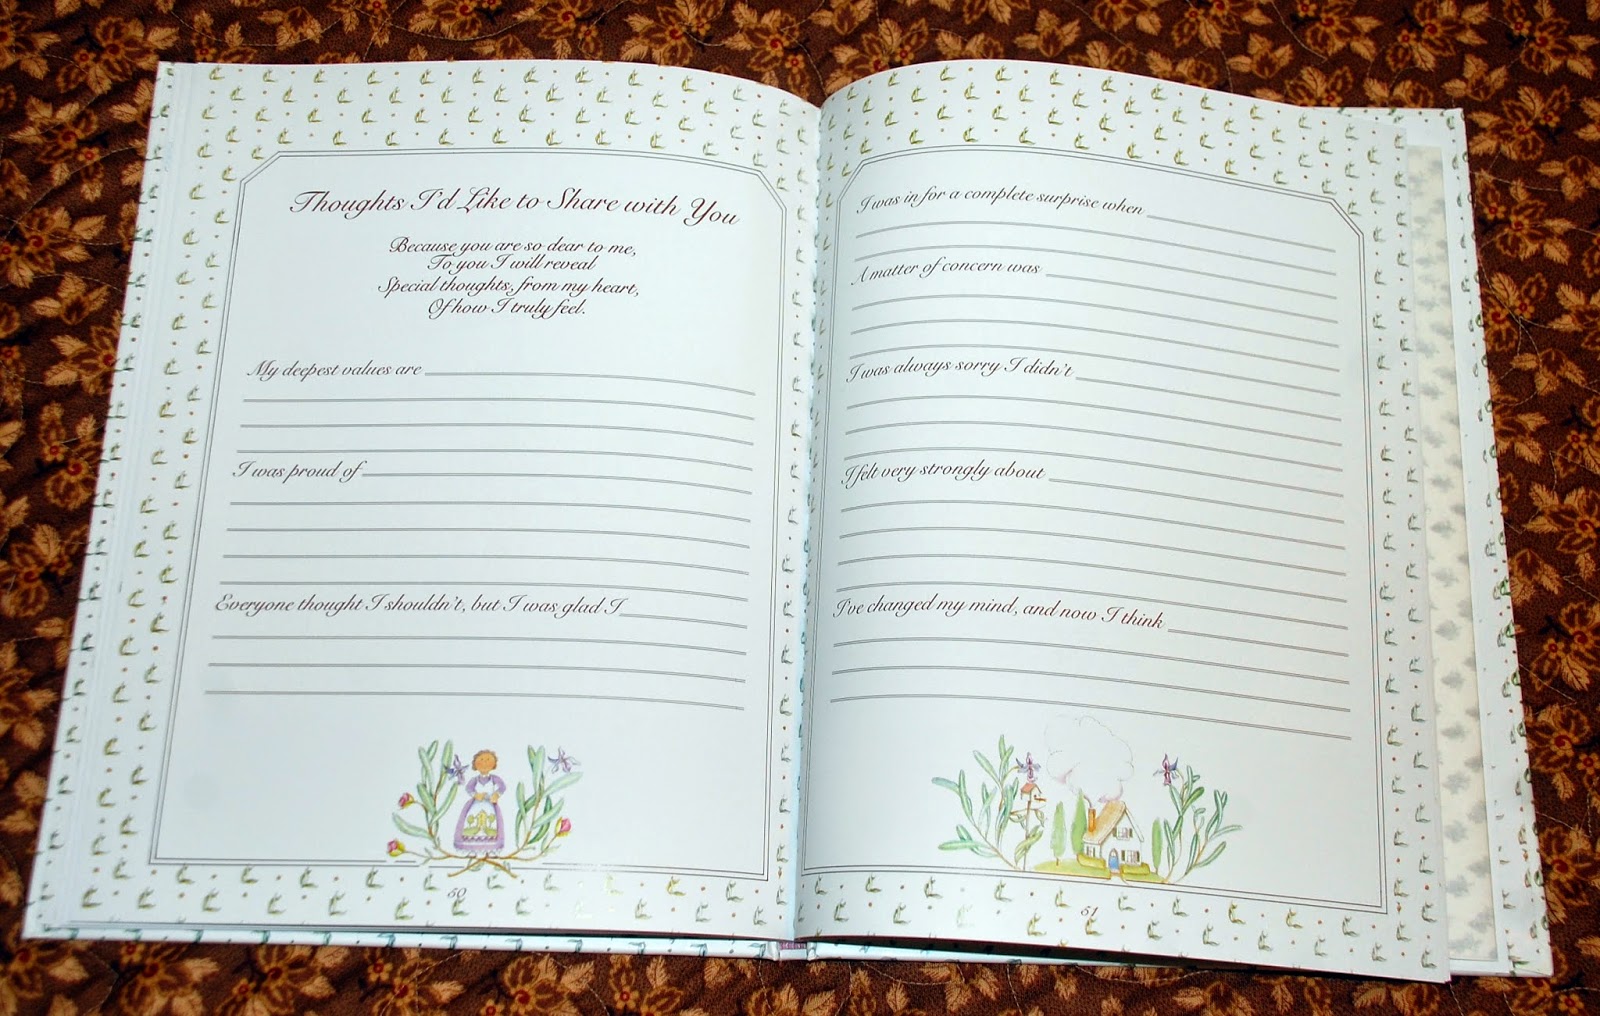 Thoughts I'd Like to Share with You
Because you are so dear to me,
To you I will reveal
Special thoughts, from my heart,
Of how I truly feel.
My deepest values are
I was proud of
Everyone thought I shouldn't, but I was glad I
50
I was in for a complete surprise when
A matter of concern was
I was always sorry I didn't
I felt very strongly about
I've changed my mind, and now I think
51